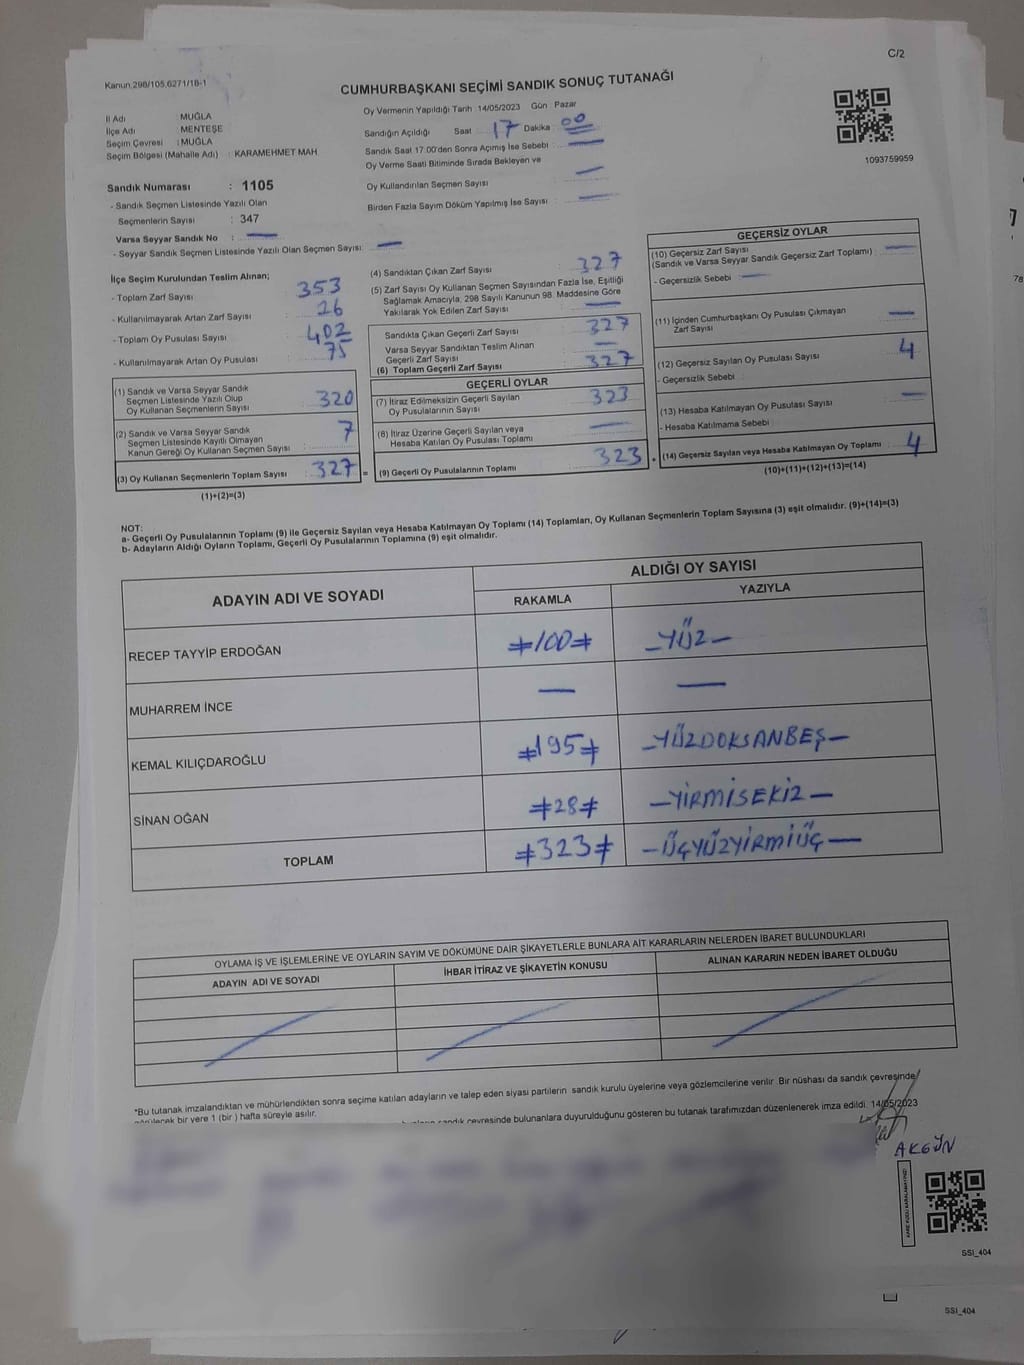 C/2
Kanun.298/105,6271/18-1
CUMHURBAŞKANI SEÇİMİ SANDIK SONUÇ TUTANAĞI
İl Adı MUĞLA
İlçe Adı : MENTEŞE
Seçim Çevresi : MUĞLA
Seçim Bölgesi (Mahalle Adı) : KARAMEHMET MAH.
Sandık Numarası : 1105
- Sandık Seçmen Listesinde Yazılı Olan
Seçmenlerin Sayısı : 347
Varsa Seyyar Sandık No : —
- Seyyar Sandık Seçmen Listesinde Yazılı Olan Seçmen Sayısı: —
Oy Vermenin Yapıldığı Tarih 14/05/2023 Gün Pazar
Sandığın Açıldığı Saat 17 Dakika 00
Sandık Saat 17.00'den Sonra Açımış İse Sebebi —
Oy Verme Saati Bitiminde Sırada Bekleyen ve
Oy Kullandırılan Seçmen Sayısı —
Birden Fazla Sayım Döküm Yapılmış İse Sayısı —
1093759959
İlçe Seçim Kurulundan Teslim Alınan;
- Toplam Zarf Sayısı 353
- Kullanılmayarak Artan Zarf Sayısı 26
- Toplam Oy Pusulası Sayısı 402
- Kullanılmayarak Artan Oy Pusulası 75
(1) Sandık ve Varsa Seyyar Sandık
Seçmen Listesinde Yazılı Olup
Oy Kullanan Seçmenlerin Sayısı 320
(2) Sandık ve Varsa Seyyar Sandık
Seçmen Listesinde Kayıtlı Olmayan
Kanun Gereği Oy Kullanan Seçmen Sayısı 7
(3) Oy Kullanan Seçmenlerin Toplam Sayısı 327 =
(1)+(2)=(3)
(4) Sandıktan Çıkan Zarf Sayısı 327
(5) Zarf Sayısı Oy Kullanan Seçmen Sayısından Fazla İse, Eşitliği
Sağlamak Amacıyla, 298 Sayılı Kanunun 98. Maddesine Göre
Yakılarak Yok Edilen Zarf Sayısı —
Sandıkta Çıkan Geçerli Zarf Sayısı 327
Varsa Seyyar Sandıktan Teslim Alınan
Geçerli Zarf Sayısı —
(6) Toplam Geçerli Zarf Sayısı 327
GEÇERLİ OYLAR
(7) İtiraz Edilmeksizin Geçerli Sayılan
Oy Pusulalarının Sayısı 323
(8) İtiraz Üzerine Geçerli Sayılan veya
Hesaba Katılan Oy Pusulası Toplamı —
(9) Geçerli Oy Pusulalarının Toplamı 323
GEÇERSİZ OYLAR
(10) Geçersiz Zarf Sayısı —
(Sandık ve Varsa Seyyar Sandık Geçersiz Zarf Toplamı) :
- Geçersizlik Sebebi : —
(11) İçinden Cumhurbaşkanı Oy Pusulası Çıkmayan
Zarf Sayısı —
(12) Geçersiz Sayılan Oy Pusulası Sayısı 4
- Geçersizlik Sebebi :
(13) Hesaba Katılmayan Oy Pusulası Sayısı —
- Hesaba Katılmama Sebebi
(14) Geçersiz Sayılan veya Hesaba Katılmayan Oy Toplamı 4
(10)+(11)+(12)+(13)=(14)
NOT:
a- Geçerli Oy Pusulalarının Toplamı (9) ile Geçersiz Sayılan veya Hesaba Katılmayan Oy Toplamı (14) Toplamları, Oy Kullanan Seçmenlerin Toplam Sayısına (3) eşit olmalıdır. (9)+(14)=(3)
b- Adayların Aldığı Oyların Toplamı, Geçerli Oy Pusulalarının Toplamına (9) eşit olmalıdır.
ADAYIN ADI VE SOYADI ALDIĞI OY SAYISI
RAKAMLA YAZIYLA
RECEP TAYYİP ERDOĞAN ≠100≠ —YÜZ—
MUHARREM İNCE — —
KEMAL KILIÇDAROĞLU ≠195≠ —YÜZDOKSANBEŞ—
SİNAN OĞAN ≠28≠ —YİRMİSEKİZ—
TOPLAM ≠323≠ —ÜÇYÜZYİRMİÜÇ—
OYLAMA İŞ VE İŞLEMLERİNE VE OYLARIN SAYIM VE DÖKÜMÜNE DAİR ŞİKAYETLERLE BUNLARA AİT KARARLARIN NELERDEN İBARET BULUNDUKLARI
ADAYIN ADI VE SOYADI İHBAR İTİRAZ VE ŞİKAYETİN KONUSU ALINAN KARARIN NEDEN İBARET OLDUĞU
*Bu tutanak imzalandıktan ve mühürlendikten sonra seçime katılan adayların ve talep eden siyasi partilerin sandık kurulu üyelerine veya gözlemcilerine verilir. Bir nüshası da sandık çevresinde
görülecek bir yere 1 (bir) hafta süreyle asılır.
sandık çevresinde bulunanlara duyurulduğunu gösteren bu tutanak tarafımızdan düzenlenerek imza edildi. 14/05/2023
AKGÜN
SSI_404
SSI_404
78